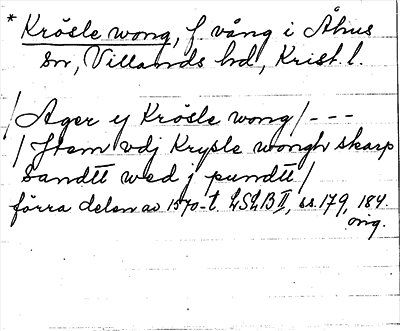 * Krösle wong, f. vång i Åhus
sn, Villands hd, Krist. l.
/ Ager y Krösle wong / - - -
/ Jtem vdj Krysle wongh skarp
sandtt wed j pundtt /
förra delen av 1570-t. LSLB II, ss. 179, 184.
orig.